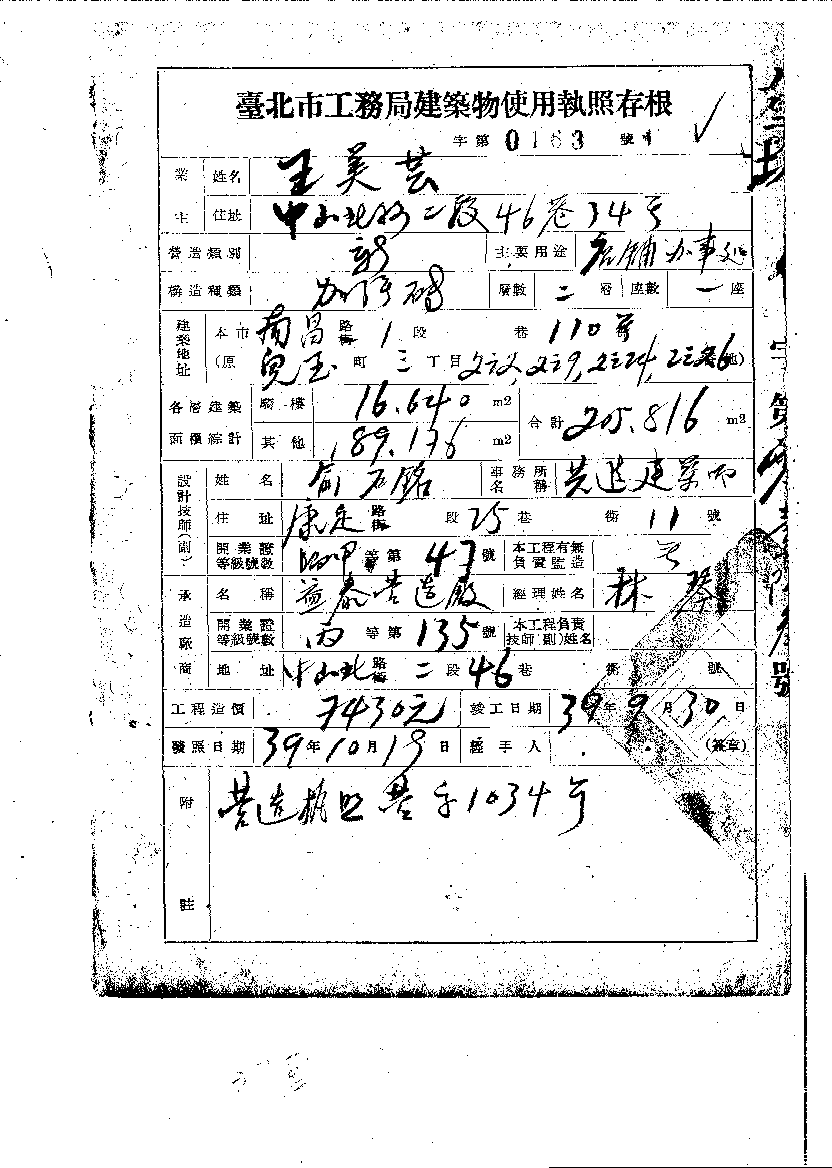 臺北市工務局建築物使用執照存根
字第 0163 號
業主 姓名 王美芸
住址 中山北路二段46巷34号
營造類別 新 主要用途 店舖办事処
構造種類 加强磚 層數 二 層 座數 一 座
建築地址 本市 南昌 路街 1 段 巷 110 号
(原 兒玉 町 三 丁目
各層建築面積綜計 騎樓 16.640 m2 合計 205.816 m2
其他 189.176 m2
設計技師(副) 姓名 事務所名稱
住址 康定 路街 段 25 巷 衖 11 號
開業證等級號數 等第 47 號 本工程有無負責監造
承造廠商 名稱 益泰营造廠 經理姓名 林
開業證等級號數 丙 等第 135 號 本工程負責技師(副)姓名
地址 中山北 路街 二 段 46 巷 衖 號
工程造價 7430元 竣工日期 39 年 9 月 30 日
發照日期 39 年 10 月 19 日 經手人 (簽章)
附註 营造执照 营字1034号